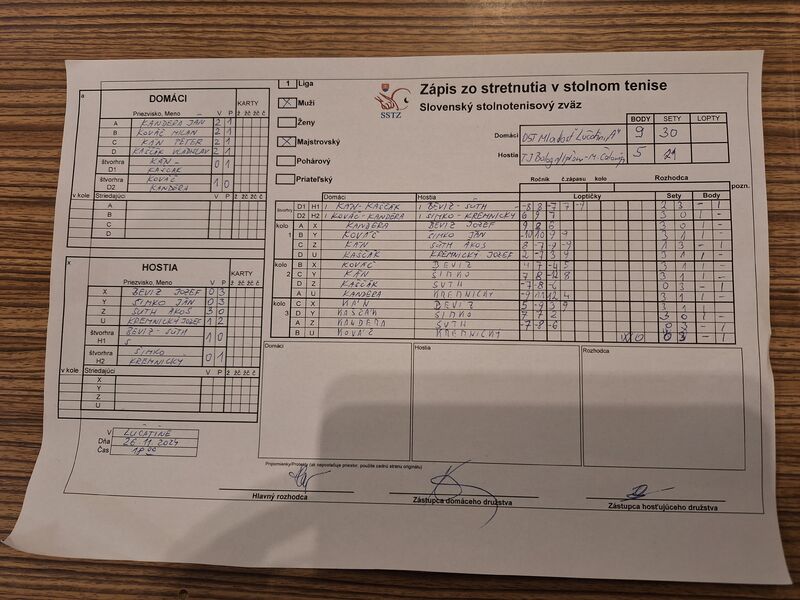 Zápis zo stretnutia v stolnom tenise
Slovenský stolnotenisový zväz
SSTZ
1 Liga
X Muži
Ženy
X Majstrovský
Pohárový
Priateľský
BODY SETY LOPTY
Domáci 9 30
Hostia 5
DOMÁCI
Priezvisko, Meno V P KARTY
ž žč žč č
A KANDERA JÁN 2 1
B KOVÁČ MILAN 2 1
C KÁN PETER 2 1
D KAŠČÁK VLADISLAV 2 1
štvorhra D1 KÁN - KAŠČÁK 0 1
štvorhra D2 KOVÁČ KANDERA 1 0
v kole Striedajúci V P ž žč žč č
A
B
C
D
HOSTIA
Priezvisko, Meno V P KARTY
ž žč žč č
X BEVIZ JOZEF 0 3
Y SIMKO JÁN 0 3
Z SUTH AKOS 3 0
U KREMNICKÝ JOZEF 1 2
štvorhra H1 BEVIZ - SUTH 1 0
štvorhra H2 SIMKO KREMNICKÝ 0 1
v kole Striedajúci V P ž žč žč č
X
Y
Z
U
V LUČATINE
Dňa 26.11.2024
Čas 18 00
Ročník č.zápasu kolo Rozhodca
Domáci Hostia Loptičky Sety Body pozn.
štvorhry D1 H1 KÁN-KAŠČÁK BEVIZ-SUTH 2 3 - 1
D2 H2 KOVÁČ-KANDERA SIMKO-KREMNICKÝ 6 9 7 3 0 1 -
kolo 1 A X KANDERA BEVIZ JOZEF 9 8 6 3 0 1 -
B Y KOVÁČ SIMKO JÁN 3 1 1 -
C Z KÁN SUTH AKOS 8 -7 -9 -9 1 3 - 1
D U KAŠČÁK KREMNICKÝ JOZEF 2 -7 3 9 3 1 1 -
kolo 2 B X KOVÁČ BEVIZ 3 1 1 -
C Y KÁN SIMKO 3 1 1 -
D Z KAŠČÁK SUTH -7 -8 -6 0 3 - 1
A U KANDERA KREMNICKÝ 3 1 1 -
kolo 3 C X KÁN BEVIZ 5 -9 3 9 3 1 1 -
D Y KAŠČÁK SIMKO 7 7 2 3 0 1 -
A Z KANDERA SUTH -7 -8 -6 0 3 - 1
B U KOVÁČ KREMNICKÝ 0 3 - 1
Domáci
Hostia
Rozhodca
Pripomienky/Protesty (ak nepostačuje priestor, použite zadnú stranu originálu)
Hlavný rozhodca
Zástupca domáceho družstva
Zástupca hosťujúceho družstva